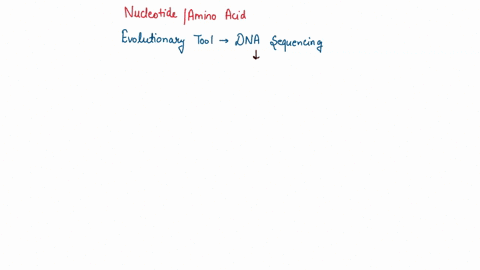 Nucleotide/Amino Acid
Evolutionary Tool → DNA Sequencing
↓